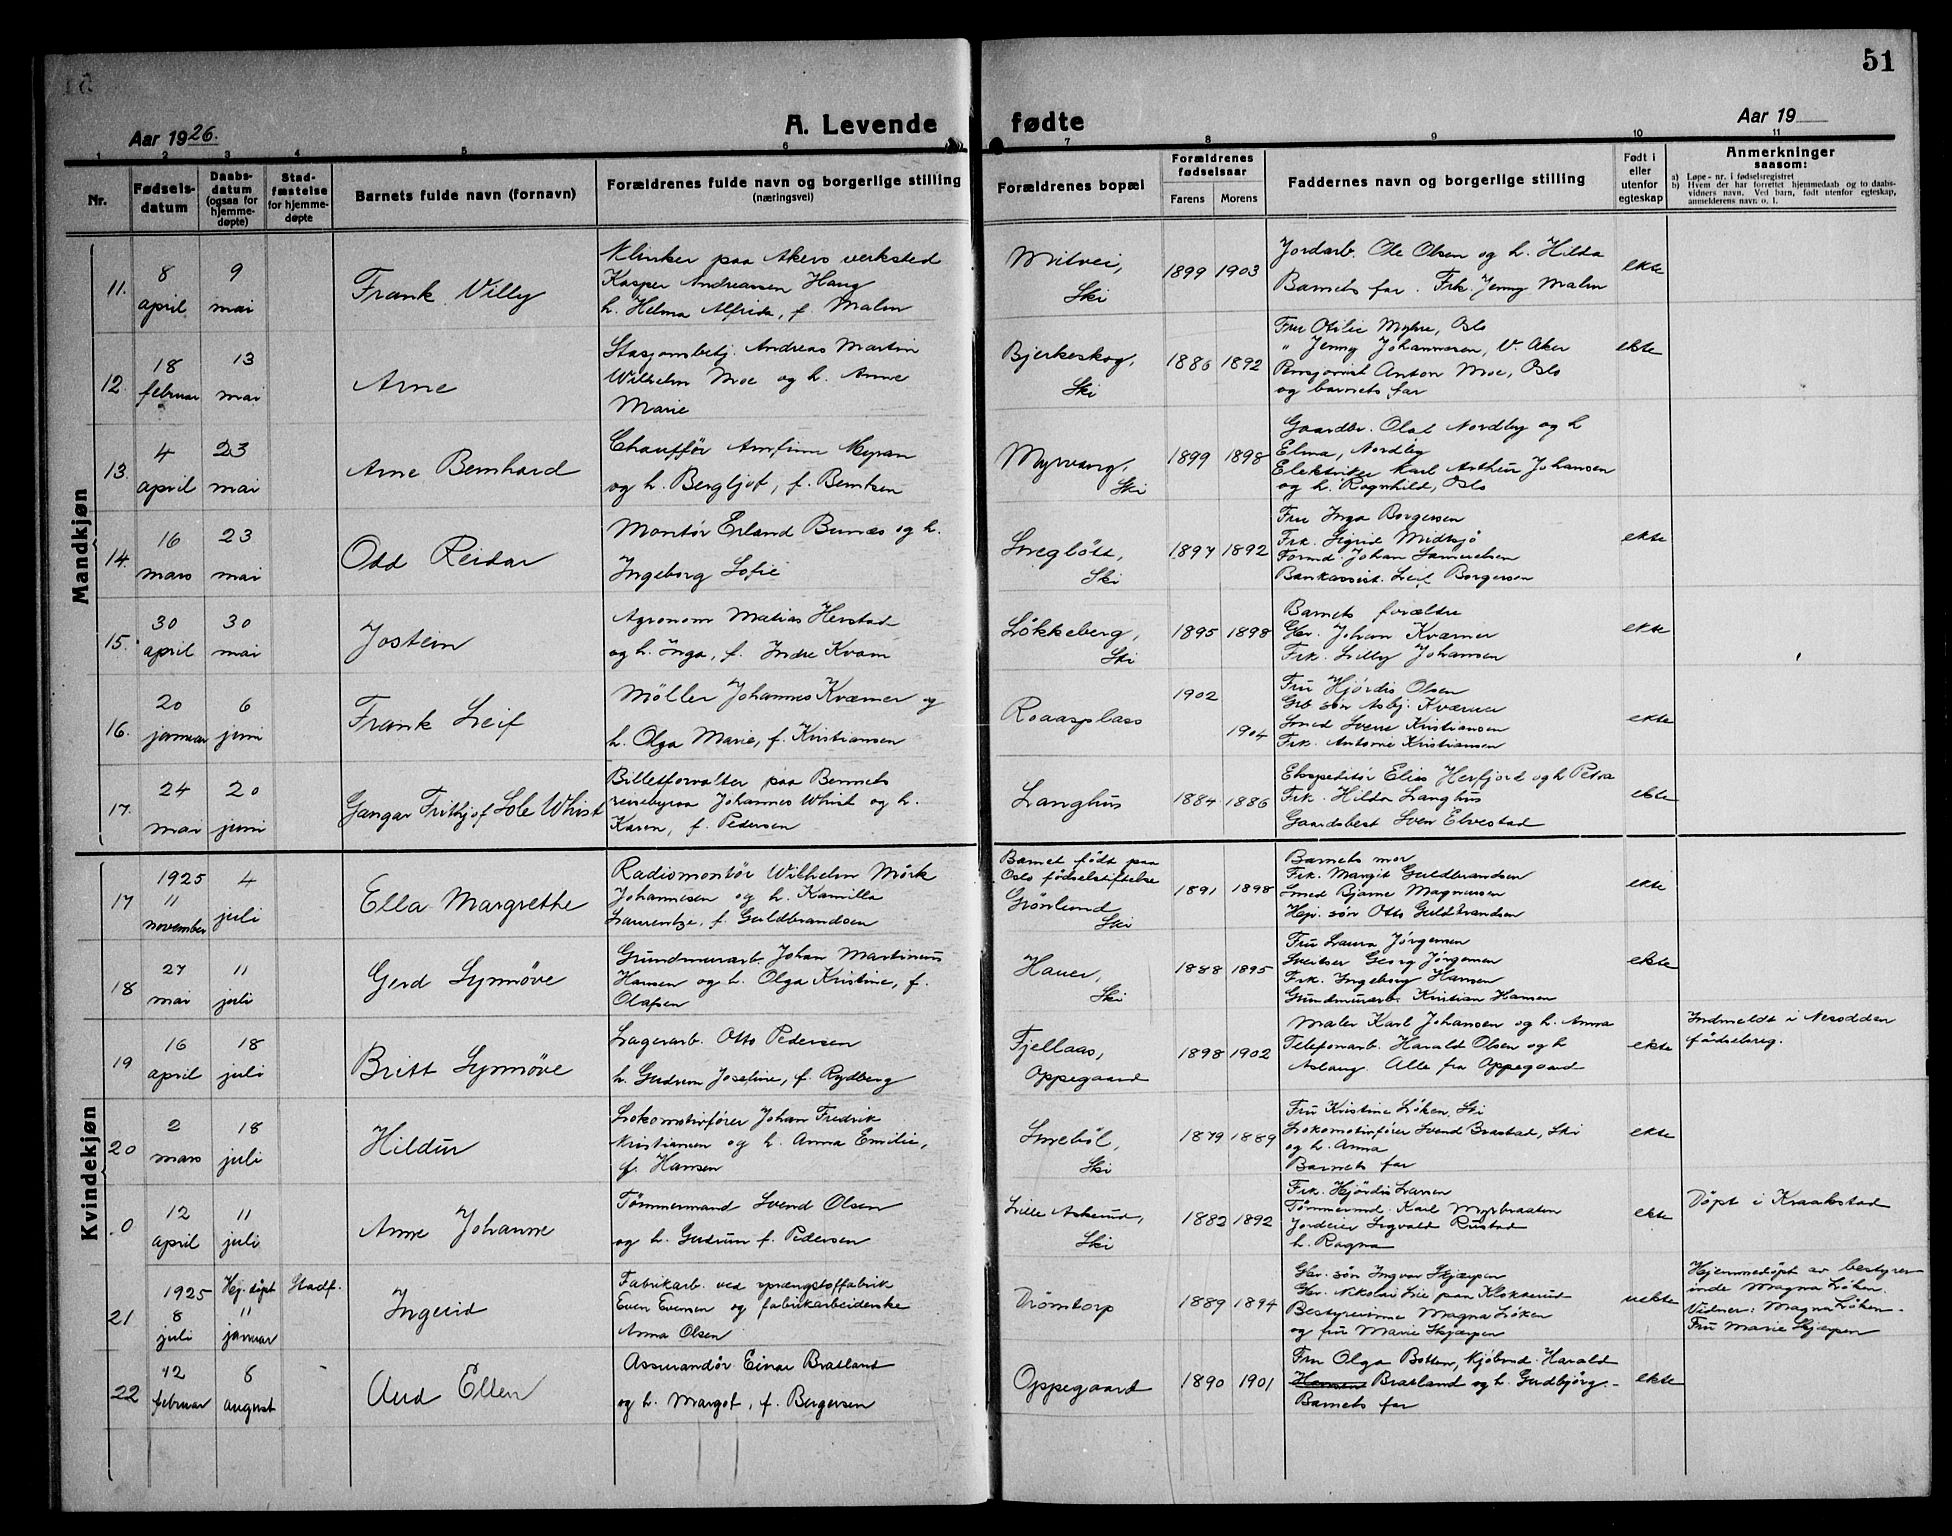 51
Aar 1926.
A. Levende fødte
Aar 19
1 2 3 4 5 6 7 8 9 10 11
Nr.
Fødsels-
datum
Daabs-
datum
(ogsaa for
hjemme-
døpte)
Stad-
fæstelse
for hjemme-
døpte
Barnets fulde navn (fornavn)
Forældrenes fulde navn og borgerlige stilling
(næringsvei)
Forældrenes bopæl
Forældrenes
fødselsaar
Farens Morens
Faddernes navn og borgerlige stilling
Født i
eller
utenfor
egteskap
Anmerkninger
saasom:
a) Løpe-nr. i fødselsregistret
b) Hvem der har forrettet hjemmedaab og to daabs-
vidners navn. Ved barn, født utenfor egteskap,
anmelderens navn o. l.
Mandkjøn
11.
8
april
9
mai
Frank Villy
Klinker paa Akers verksted
Kasper Andreassen Haug
h. Helma Alfrida, f. Malm
Mitvei,
Ski
1899 1903
Jordarb. Ole Olsen og h. Hilda
Barnets far. Frk. Jenny Malm
ekte
12.
18
februar
13
mai
Arne
Stasjonsbetj. Andreas Martin
Wilhelm Moe og h. Anne
Marie
Bjerkeskog,
Ski
1886 1892
Fru Otilie Myhre, Oslo
" Jenny Johannesen, V. Aker
Pensjonist Anton Moe, Oslo
og barnets far
ekte
13.
4
april
23
mai
Arne Bernhard
Chauffør Arnfinn Myran
og h. Bergljot, f. Berntsen
Myrvang,
Ski
1899 1898
Gaardbr. Olaf Nordby og h
Elma, Nordby
Elektriker Karl Arthur Johansen
og h. Ragnhild, Oslo
14.
16
mars
23
mai
Odd Reidar
Montør Erland Bunæs og h.
Ingeborg Sofie
Ski
1897 1892
Fru Inga Borgersen
Frk. Sigrid Midtsjø
Formd. Johan Samuelsen
Bankassist. Leif Borgersen
ekte
15.
30
april
30
mai
Jostein
Agronom Matias Herstad
og h. Inga, f. Indre Kvam
Løkkeberg,
Ski
1895 1898
Barnets forældre
Gbr. Johan Kværner
Frk. Lilly Johansen
ekte
16.
20
januar
6
juni
Frank Leif
Møller Johannes Kværner og
h. Olga Marie, f. Kristiansen
Roaasplass
1902
1904
Fru Hjørdis Olsen
Grb søn Asbj. Kværner
Smed Sverre Kristiansen
Frk. Antonie Kristiansen
ekte
17.
24
mai
20
juni
Gangar Frithjof Sole Whist
Billetforvalter paa Bennets
reisebyraa Johannes Whist og h.
Karen, f. Pedersen
Langhus
1884 1886
Ekspeditør Elias Herfjord og h Petra
Frk. Hilda Langhus
Gaardsbest Sven Elvestad
ekte
Kvindekjøn
17
1925
11
november
4
juli
Ella Margrethe
Radiomontør Wilhelm Mørk
Johannesen og h. Kamilla
Laurentze, f. Guldbrandsen
Barnet født paa
Oslo fødselstiftelse
Grønlund
Ski
1891 1898
Barnets mor
Frk. Margit Guldbrandsen
Smed Bjarne Magnussen
Hj. søn Otto Guldbrandsen
ekte
18
27
mai
11
juli
Gerd Synnøve
Grundmurarb. Johan Martinius
Hansen og h. Olga Kristine, f.
Olafsen
Hauer,
Ski
1888 1895
Fru Laura Jørgensen
Sveitser Georg Jørgensen
Frk. Ingeborg Hansen
Grundmurarb. Kristian Hansen
ekte
19
16
april
18
juli
Britt Synnøve
Lagerarb. Otto Pedersen
h. Gudrun Josefine, f. Rydberg
Fjellaas,
Oppegaard
1898 1902
Maler Karl Johansen og h. Anna
Telefonarb. Harald Olsen og h
Aslaug. Alle fra Oppegaard
ekte
Indmeldt i Nesodden
fødselsreg.
20
2
mars
18
juli
Hildur
Lokomotivfører Johan Fredrik
Kristiansen og h. Anna Emilie,
f. Hansen
Smebøl,
Ski
1879 1889
Fru Kristine Løken, Ski
Lokomotivfører Svend Brastad, Ski
og h. Anna
Barnets far
ekte
0
12
april
11
juli
Anne Johanne
Tømmermand Svend Olsen
og h. Gudrun f. Pedersen
Lille Askerud,
Ski
1882 1892
Frk. Hjørdis Larsen
Tømmermd. Karl Myrbraaten
Jordeier Sigvald Rustad
h. Ragna
ekte
Døpt i Kraakstad
21
1925
8
juli
Hj. døpt
11
januar
Stadf.
Ingerid
Fabrikarb. ved sprængstoffabrik
Even Evensen og fabrikarbeiderske
Anna Olsen
Drømtorp
1889 1894
Gbr. søn Ingvar Skjærpen
Gbr. Nikolai Lie paa Klokkerud
Bestyrerinne Magna Løken
og fru Marie Skjærpen
uekte
Hjemmedøpt av bestyrer-
inde Magna Løken.
Vidner: Magna Løken.
Fru Marie Skjærpen
22
12
februar
8
august
Aud Ellen
Assurandør Einar Bratland
og h. Margot, f. Bergersen
Oppegaard
1890 1901
Fru Olga Botten, Kjøbmd. Harald
Bratland og h. Gudbjørg.
Barnets far
ekte